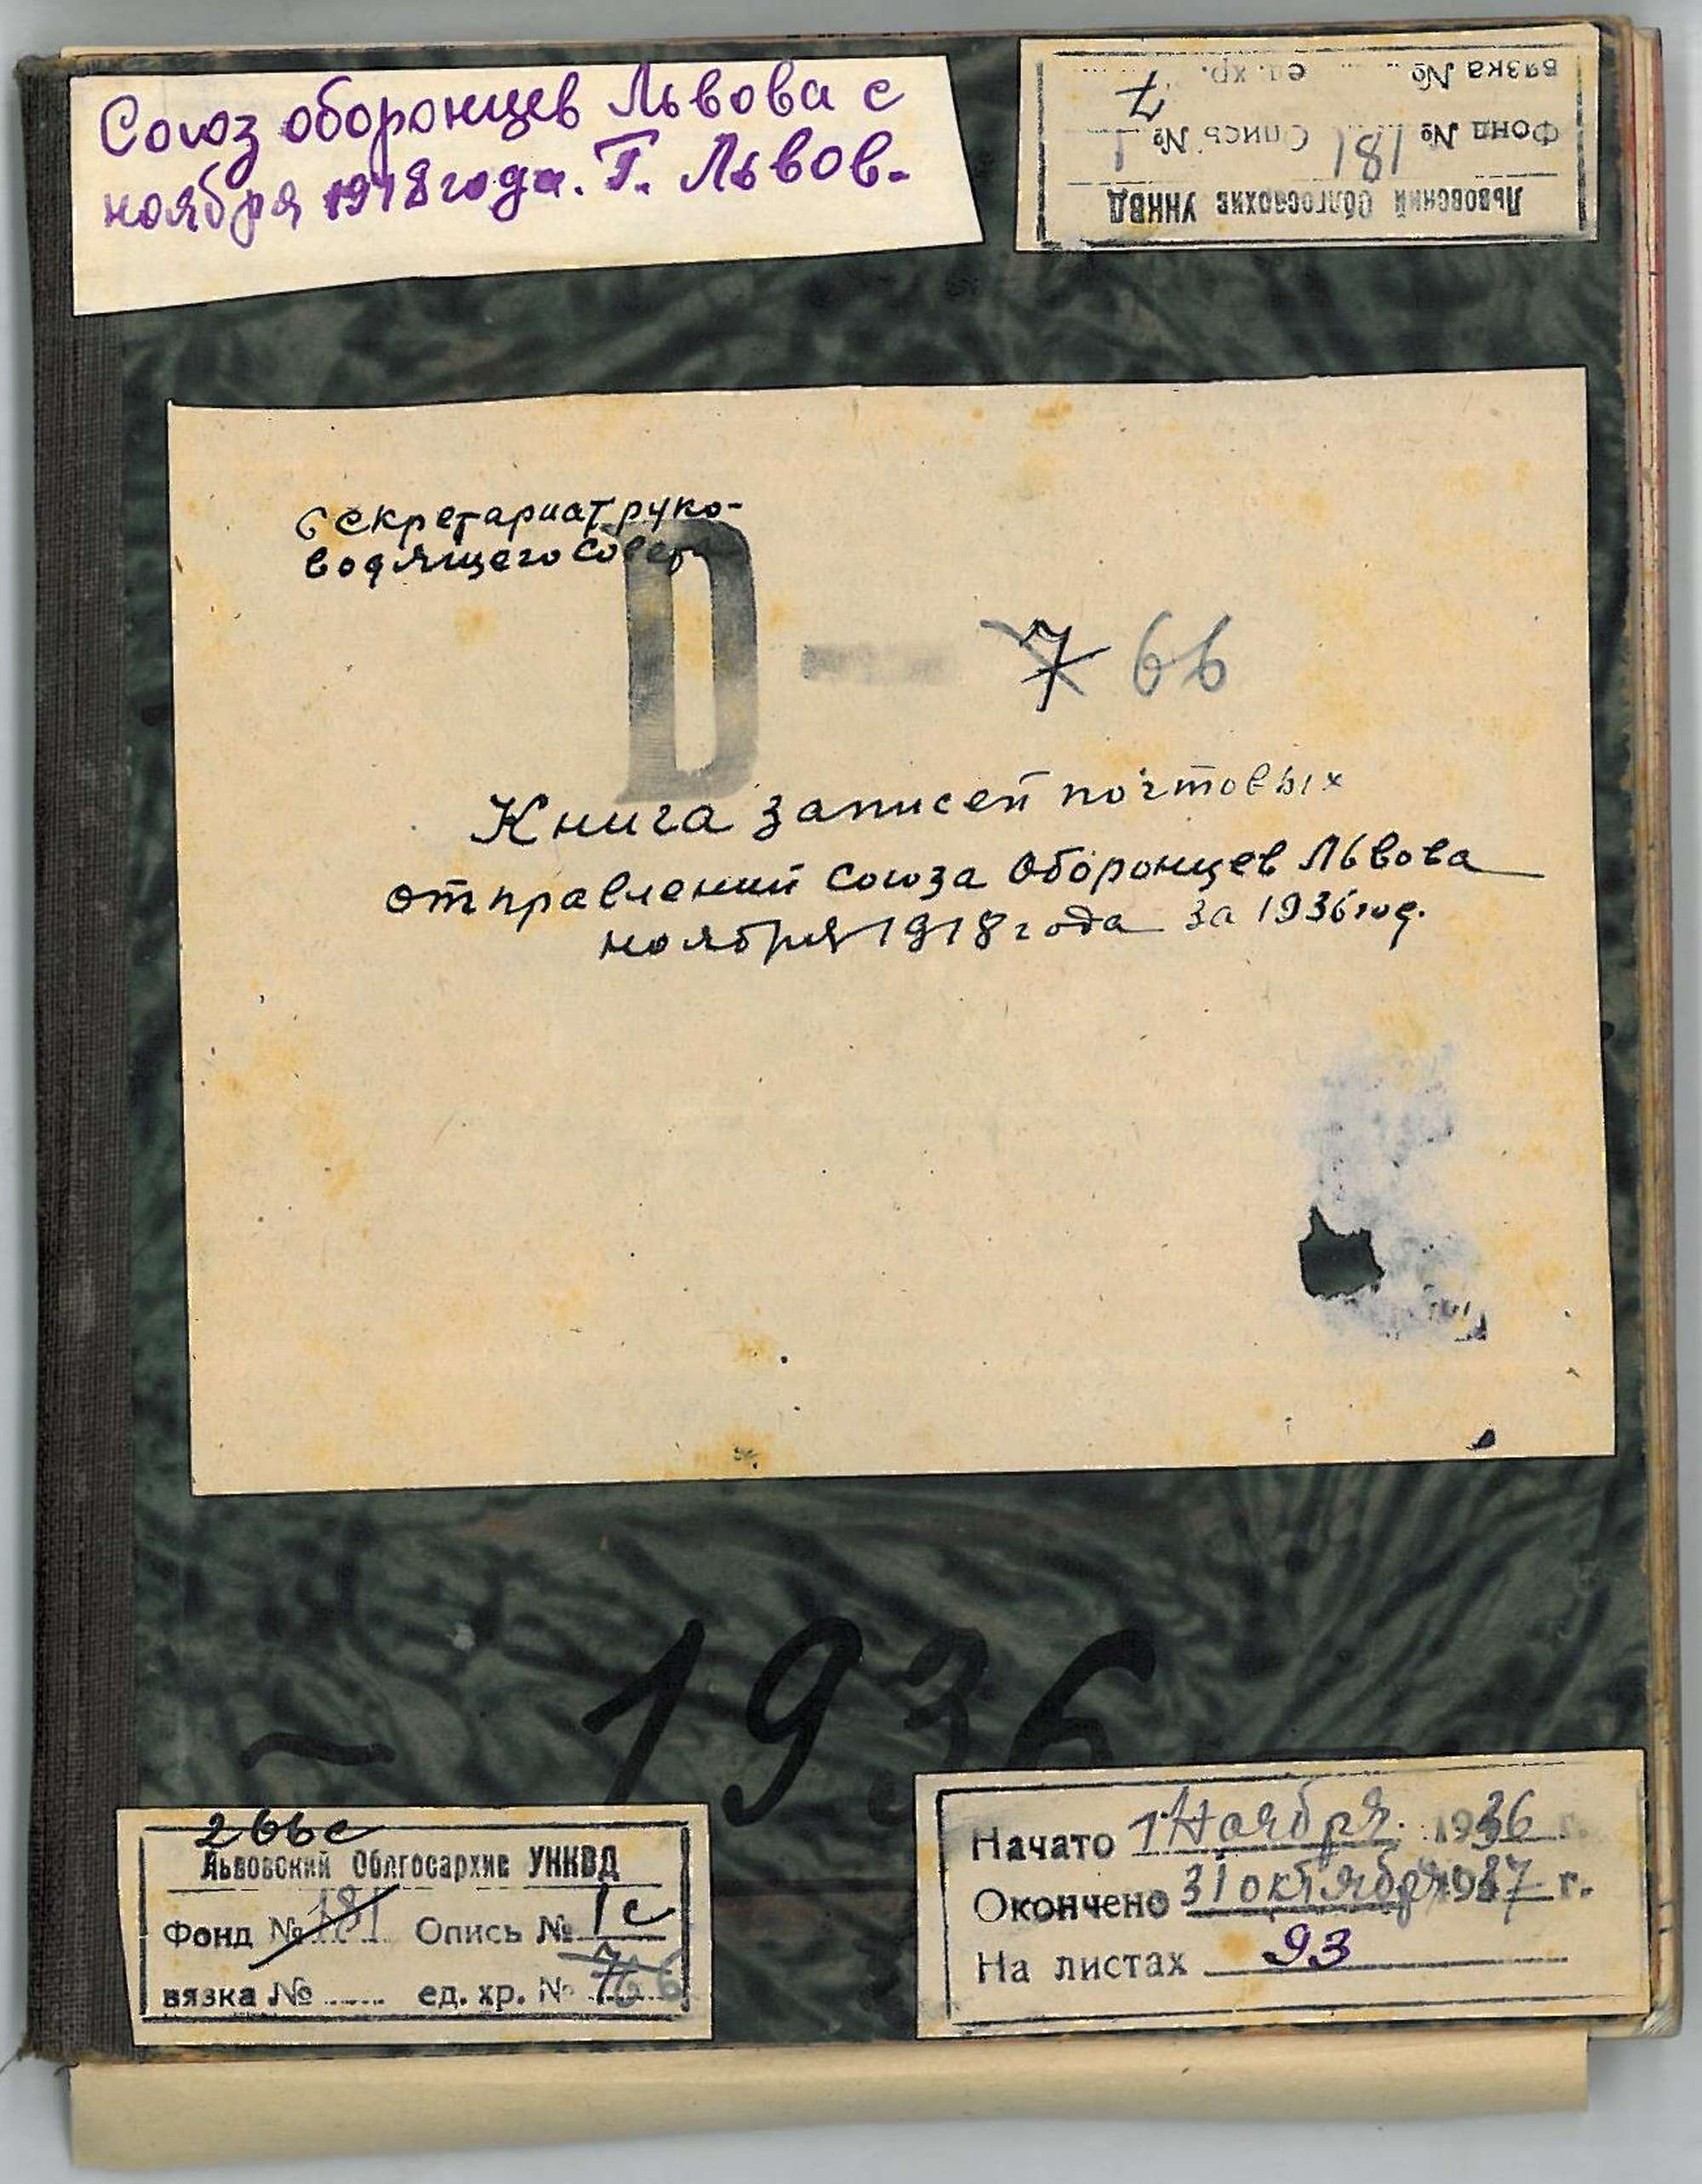 Союз оборонцев Львова с
ноября 1918 года. Г. Львов.
вязка № ед. хр. 7
Фонд № 181 Опись № 1
Львовский Облгосархив УНКВД
Секретариат руко-
водящего совета
D — 7 66
Книга записей почтовых
отправлений Союза Оборонцев Львова
ноября 1918 года за 1936 год.
1936
266с
Львовский Облгосархив УНКВД
Фонд № 181 Опись № 1с
вязка № ед. хр. № 7 66
Начато 1 Ноября 1936 г.
Окончено 31 октября 1937 г.
На листах 93